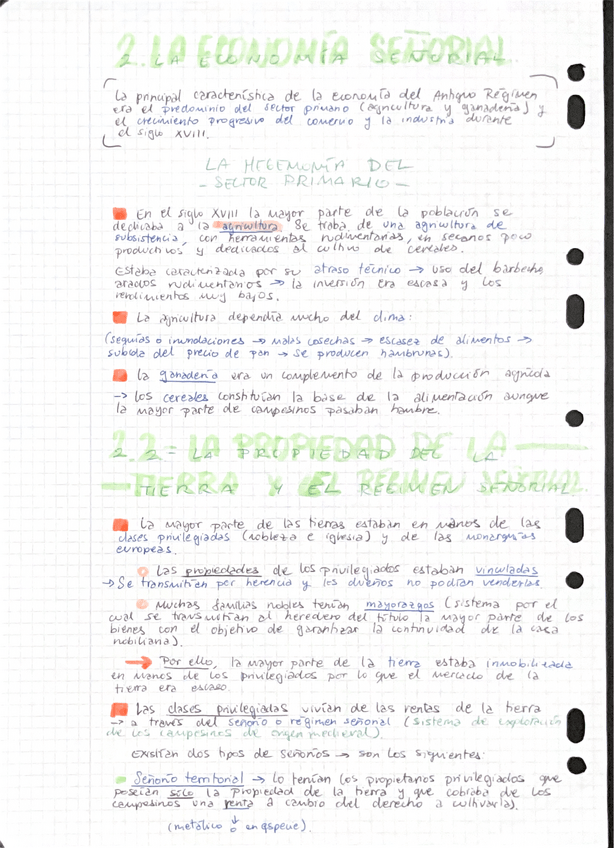 2. LA ECONOMÍA SEÑORIAL.
La principal característica de la economía del Antiguo Régimen
era el predominio del sector primario (agricultura y ganadería) y
el crecimiento progresivo del comercio y la industria durante
el siglo XVIII.
LA HEGEMONÍA DEL
- SECTOR PRIMARIO -
En el siglo XVIII la mayor parte de la población se
dedicaba a la agricultura. Se traba de una agricultura de
subsistencia, con herramientas rudimentarias, en secanos poco
productivos y dedicados al cultivo de cereales.
Estaba caracterizada por su atraso técnico → uso del barbecho,
arados rudimentarios → la inversión era escasa y los
rendimientos muy bajos.
La agricultura dependía mucho del clima:
(sequías o inundaciones → malas cosechas → escasez de alimentos →
subida del precio de pan → se producen hambrunas).
La ganadería era un complemento de la producción agrícola
→ los cereales constituían la base de la alimentación aunque
la mayor parte de campesinos pasaban hambre.
2.2= LA PROPIEDAD DE LA
TIERRA Y EL RÉGIMEN SEÑORIAL.
La mayor parte de las tierras estaban en manos de las
clases privilegiadas (nobleza e iglesia) y de las monarquías
europeas.
Las propiedades de los privilegiados estaban vinculadas
→ Se transmitían por herencia y los dueños no podían venderlas.
Muchas familias nobles tenían mayorazgos (sistema por el
cual se transmitían al heredero del título la mayor parte de los
bienes con el objetivo de garantizar la continuidad de la casa
nobiliaria).
→ Por ello, la mayor parte de la tierra estaba inmobilizada
en manos de los privilegiados por lo que el mercado de la
tierra era escaso.
Las clases privilegiadas vivían de las rentas de la tierra
→ a través del señorío o régimen señorial (sistema de explotación
de los campesinos de origen medieval).
Existían dos tipos de señoríos → son los siguientes:
Señorío territorial → lo tenían los propietarios privilegiados que
poseían sólo la propiedad de la tierra y que cobraba de los
campesinos una renta a cambio del derecho a cultivarla).
(metálico ↓ o en especie).